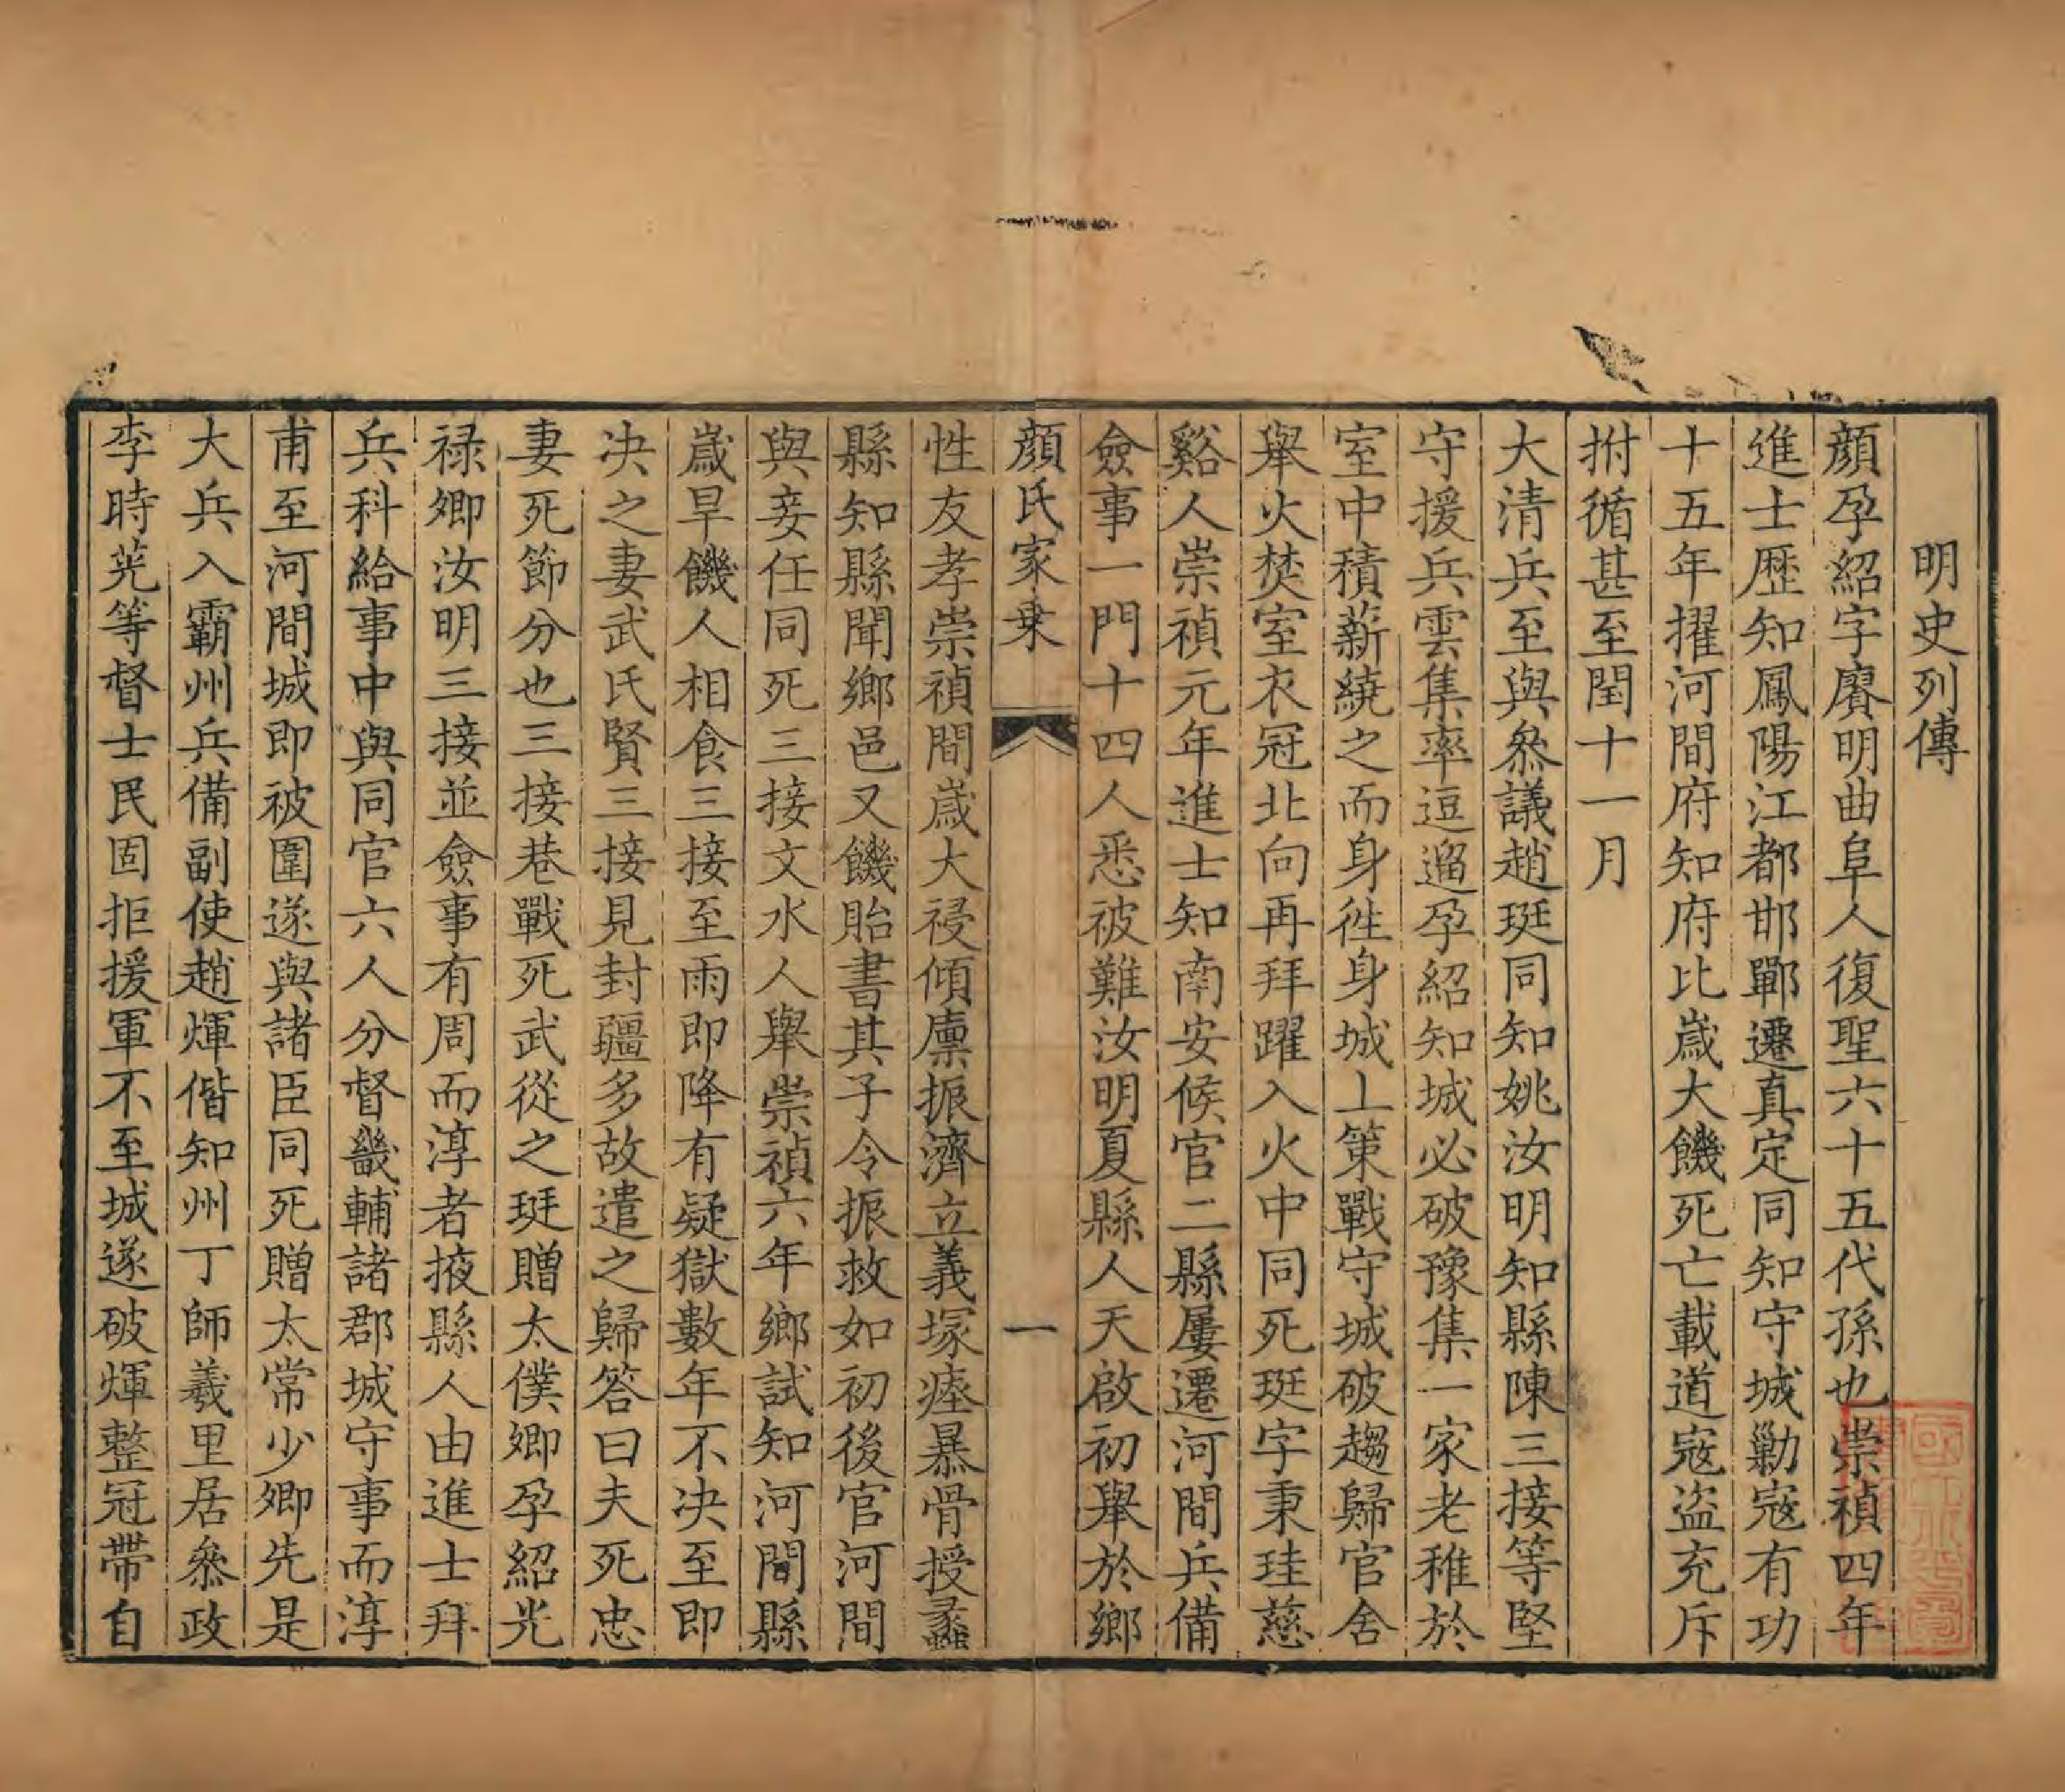 明史列傳
顏孕紹字賡明曲阜人復聖六十五代孫也崇禎四年
進士歷知鳳陽江都邯鄲遷真定同知守城勦寇有功
十五年擢河間府知府比歲大饑死亡載道寇盜充斥
拊循甚至閏十一月
大清兵至與叅議趙珽同知姚汝明知縣陳三接等堅
守援兵雲集率逗遛孕紹知城必破豫集一家老稚於
室中積薪繞之而身徃身城上策戰守城破趨歸官舍
舉火焚室衣冠北向再拜躍入火中同死珽字秉珪慈
谿人崇禎元年進士知南安候官二縣屢遷河間兵備
僉事一門十四人悉被難汝明夏縣人天啟初舉於鄉
顏氏家乗
一
性友孝崇禎間歲大祲傾廩振濟立義塚瘞暴骨授蠡
縣知縣聞鄉邑又饑貽書其子令振救如初後官河間
與妾任同死三接文水人舉崇禎六年鄉試知河間縣
歲旱饑人相食三接至雨即降有疑獄數年不决至即
决之妻武氏賢三接見封疆多故遣之歸答曰夫死忠
妻死節分也三接巷戰死武從之珽贈太僕卿孕紹光
禄卿汝明三接並僉事有周而淳者掖縣人由進士拜
兵科給事中與同官六人分督畿輔諸郡城守事而淳
甫至河間城即被圍遂與諸臣同死贈太常少卿先是
大兵入霸州兵備副使趙煇偕知州丁師羲里居叅政
李時茪等督士民固拒援軍不至城遂破煇整冠帶自